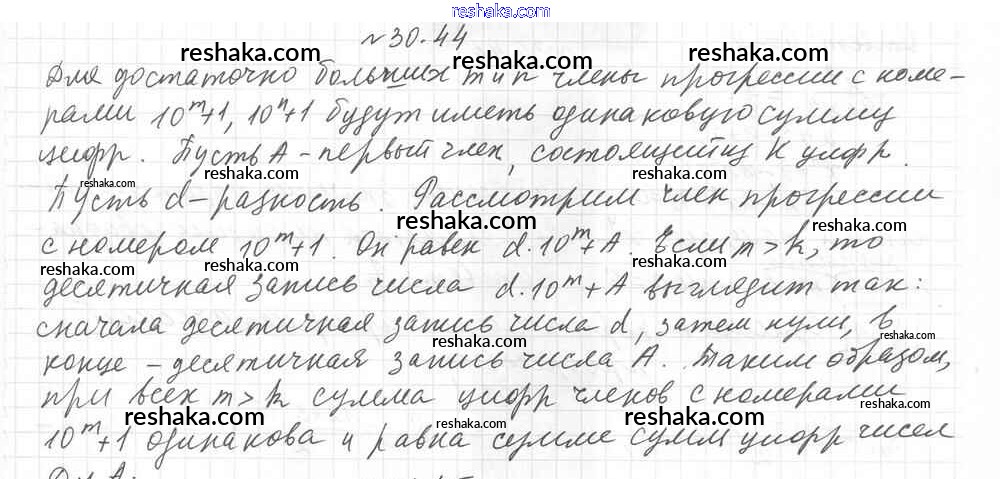 reshaka.com
№30.44
reshaka.com reshaka.com
Для достаточно больших m и n члены прогрессии с номе-
рами 10^m+1, 10^n+1 будут иметь одинаковую сумму
reshaka.com reshaka.com
цифр. Пусть A - первый член, состоящий из K цифр.
reshaka.com reshaka.com
Пусть d - разность. Рассмотрим член прогрессии
reshaka.com
с номером 10^m+1. Он равен d·10^m+A. Если m>k, то
reshaka.com reshaka.com reshaka.com
десятичная запись числа d·10^m+A выглядит так:
reshaka.com
сначала десятичная запись числа d, затем нули, в
reshaka.com
конце - десятичная запись числа A. Таким образом,
reshaka.com
при всех m>k сумма цифр членов с номерами
reshaka.com reshaka.com reshaka.com
10^m+1 одинакова и равна сумме сумм цифр чисел
reshaka.com reshaka.com